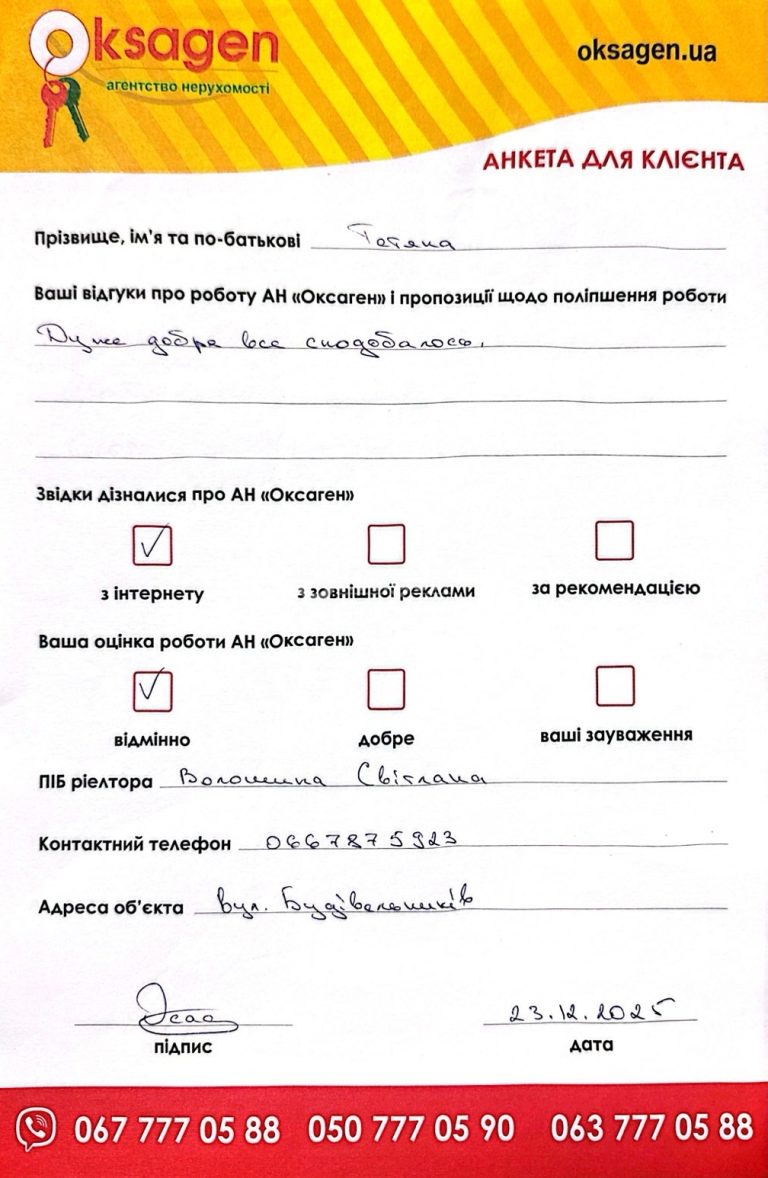 Oksagen
агентство нерухомості
oksagen.ua
АНКЕТА ДЛЯ КЛІЄНТА
Прізвище, ім'я та по-батькові Тетяна
Ваші відгуки про роботу АН «Оксаген» і пропозиції щодо поліпшення роботи
Дуже добра все сподобалось.
Звідки дізналися про АН «Оксаген»
з інтернету з зовнішної реклами за рекомендацією
Ваша оцінка роботи АН «Оксаген»
відмінно добре ваші зауваження
ПІБ ріелтора Волошина Світлана
Контактний телефон 0667875923
Адреса об'єкта вул. Будівельників
23.12.2025
підпис дата
067 777 05 88 050 777 05 90 063 777 05 88